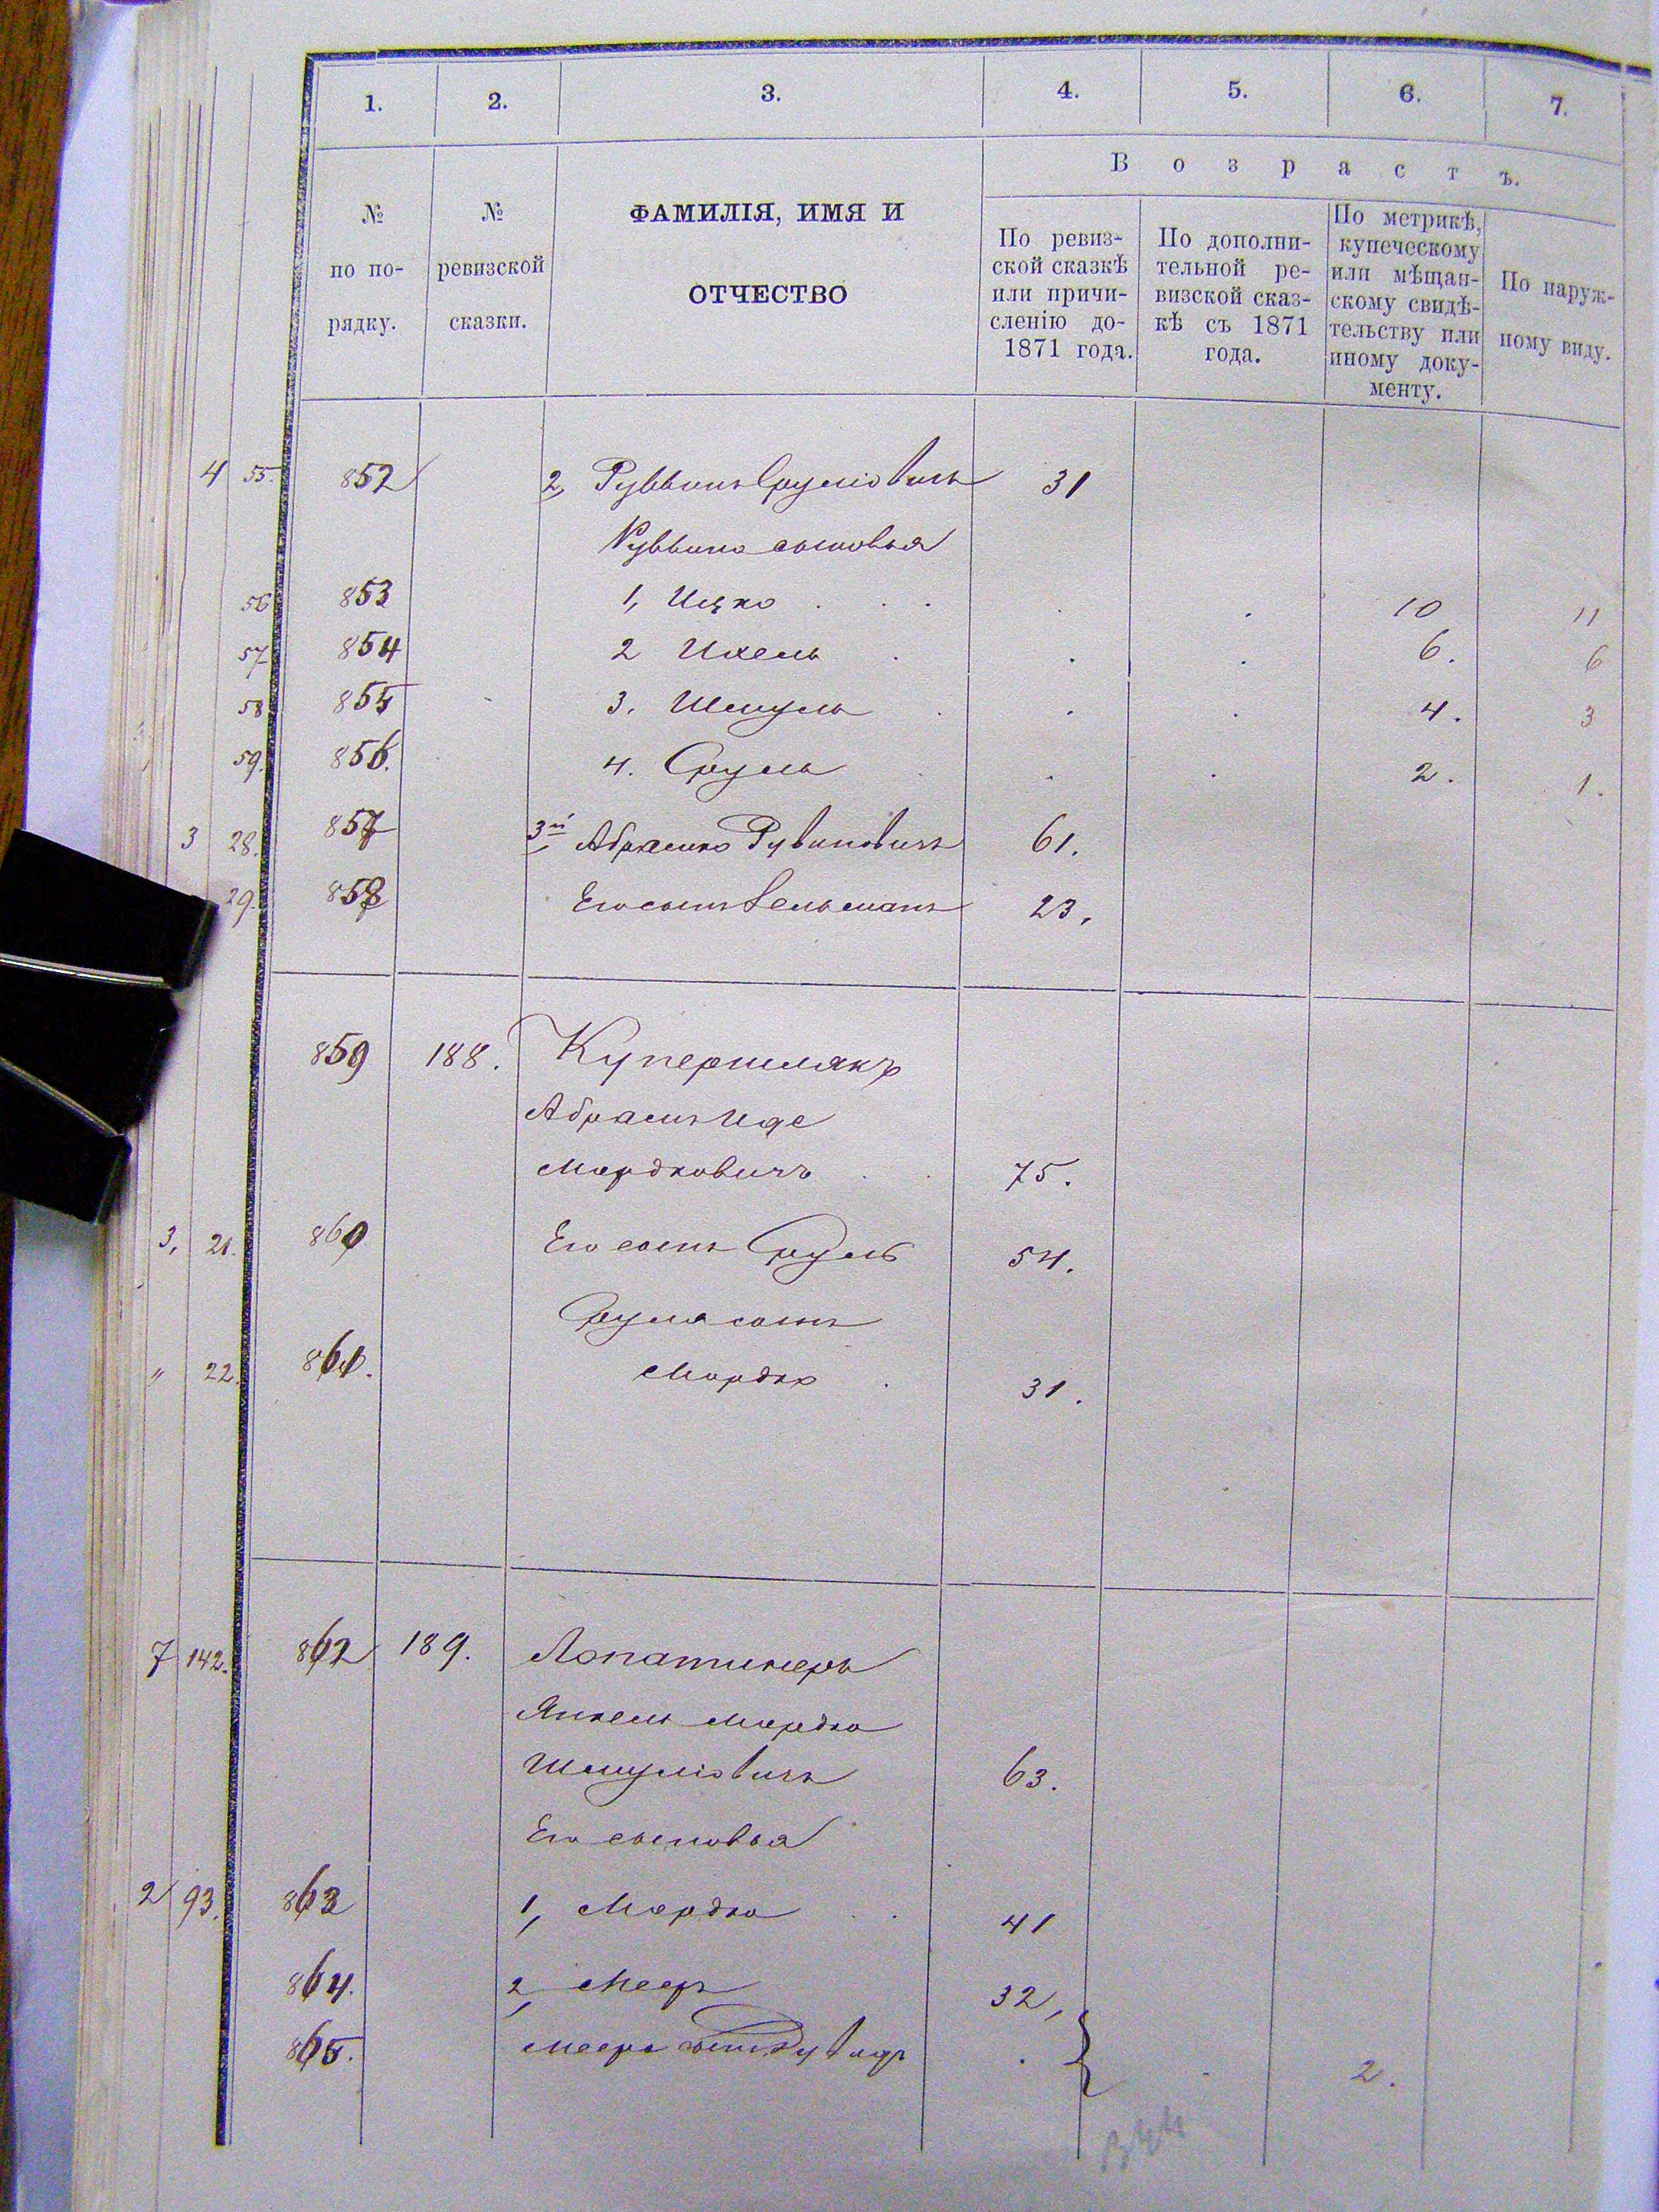 1. 2. 3. 4. 5. 6. 7.
№ по по- рядку.
№ ревизской сказки.
ФАМИЛІЯ, ИМЯ И
ОТЧЕСТВО
В о з р а с т ъ.
По ревиз-
ской сказкѣ
или причи-
сленію до-
1871 года.
По дополни-
тельной ре-
визской сказ-
кѣ съ 1871
года.
По метрикѣ,
купеческому
или мѣщан-
скому свидѣ-
тельству или
иному доку-
менту.
По наруж-
ному виду.
4 55. 852 2, Руввинъ Сруліовичъ 31
Руввина сыновья
56 853 1, Ицко . . . 10 11
57 854 2 Ихель . . . 6. 6
58 855 3. Шмуль . . . 4. 3
59. 856. 4. Сруль . . . 2. 1.
3 28. 857 3й Абрамко Рувиновичъ 61.
29. 858 Его сынъ Зельманъ 23.
859 188. Купершлякъ
Абрамъ Иде
Мордковичъ . . 75.
3, 21. 860 Его сынъ Сруль 54.
Сруля сынъ
" 22. 861. Мордко . 31.
7 142. 862 189. Лопатинеръ
Янкель Мордко
Шмуліовичъ 63.
Его сыновья
2 93. 863 1, Мордко . . 41
864. 2, Мееръ 32,
865. Меера сынъ . . 2.